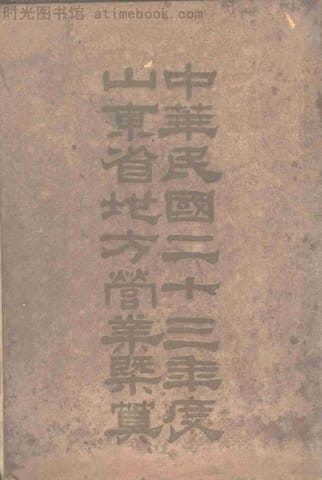 时光图书馆 - atimebook.com
中華民國二十三年度
山東省地方營業槩算